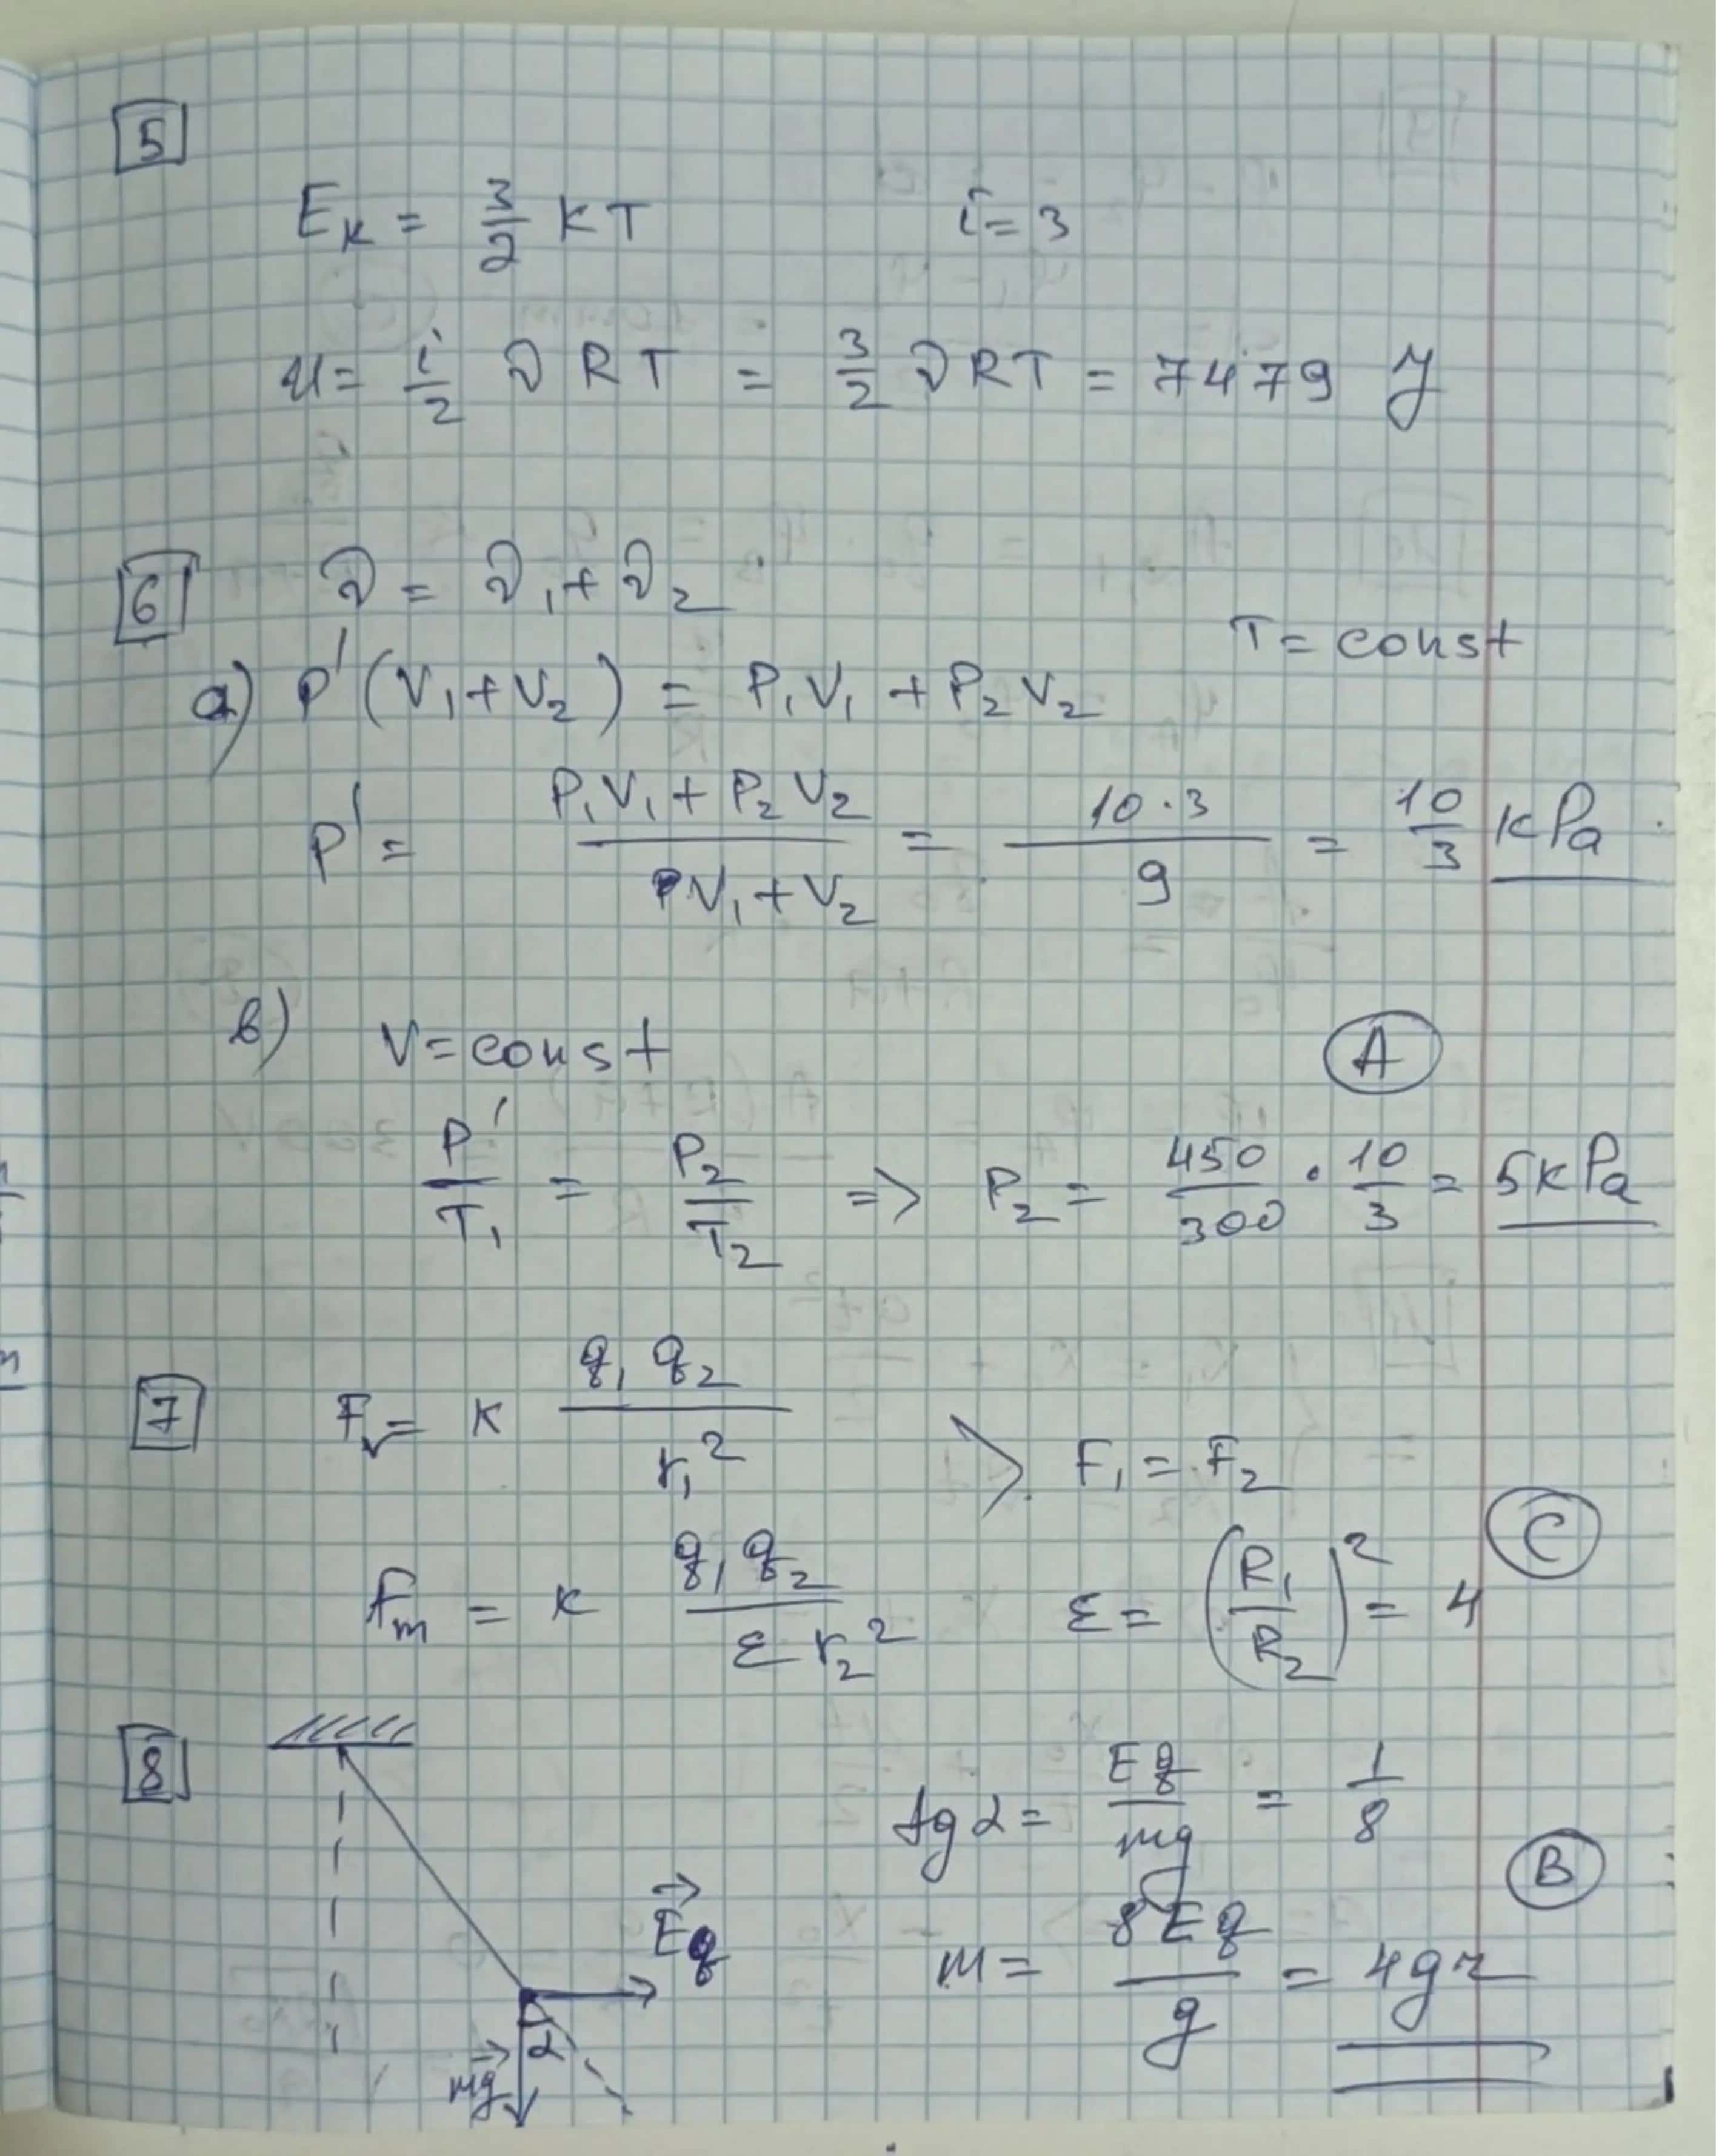 5
E_K = 3/2 KT    i = 3
U = i/2 ν RT = 3/2 ν RT = 7479 J
6
ν = ν₁ + ν₂
T = const
a) P' (V₁ + V₂) = P₁V₁ + P₂V₂
P' = (P₁V₁ + P₂V₂)/(V₁ + V₂) = (10 · 3)/9 = 10/3 kPa
b) V = const
A
P'/T₁ = P₂/T₂ => P₂ = 450/300 · 10/3 = 5 kPa
7
F_v = K q₁q₂/r₁² > F₁ = F₂
C
F_m = K q₁q₂/(εr₂²)    ε = (R₁/R₂)² = 4
8
tg α = Eq/mg = 1/8
B
Eq
m = 8Eq/g = 4gr
α
mg